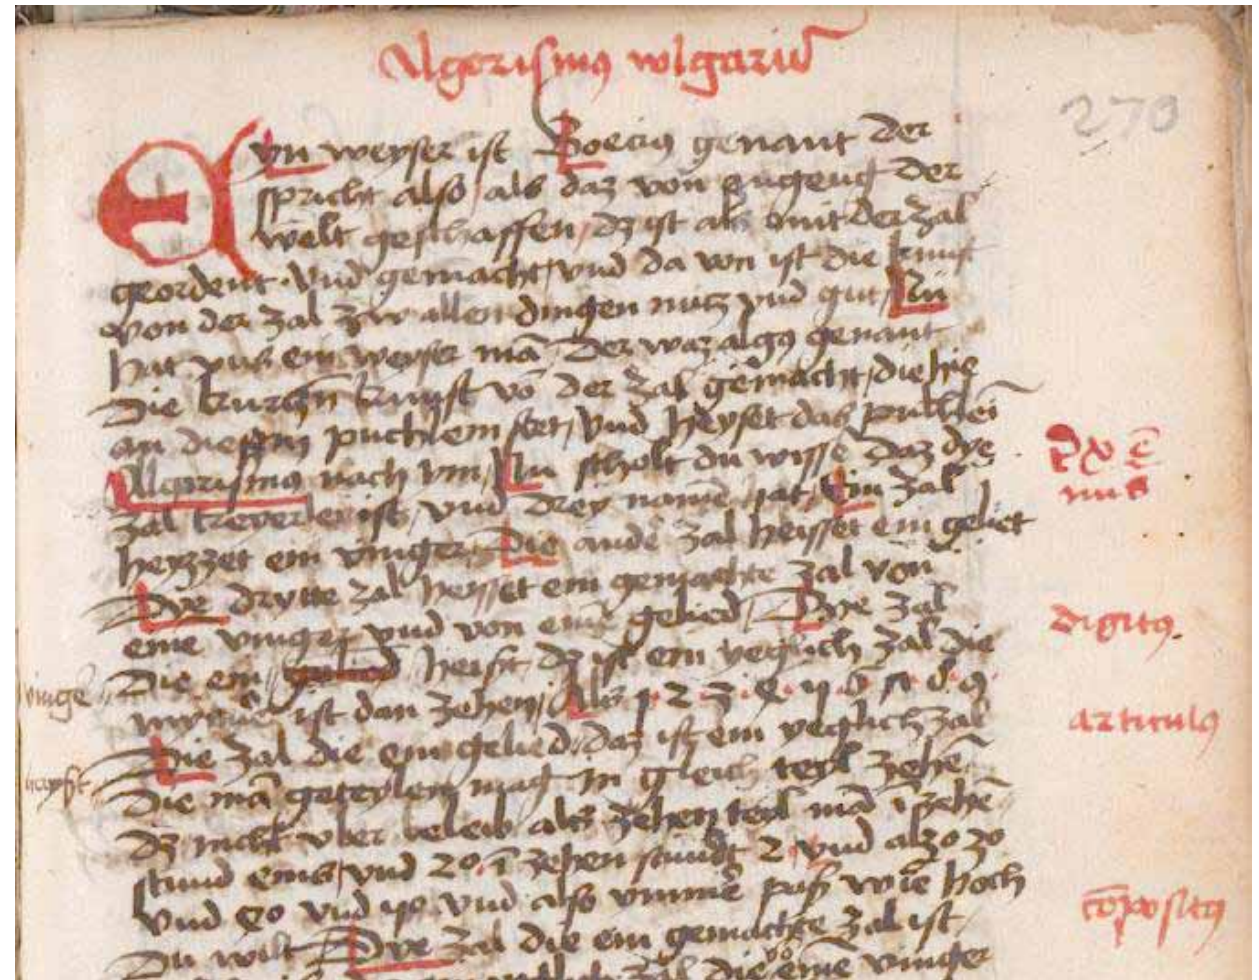 Algorismus wlgariu
270
Eyn weyser ist Boecius genant der
spricht also als daz von der
welt geschaffen dz ist als mit der zal
geordent vnd gemacht vnd da von ist die kunst
von der zal zw allen dingen nutz vnd gut Nu
hat vns ein weyser mā der waz algus genant
Die kurczn kunst vō der zal gemacht die hie
an diesem puchlein stet vnd heyset das puchlei
Algorismus nach ym Nu scholt du wisse daz dye
zal ist vnd drey name hat Ein zal
heyzzet ein vinger Die ande zal heisset ein geliet
Dye drytte zal heysset ein gemachte zal von
eine vinger vnd von eine gelied Dye zal
vinge
Die ein gelied heist dz ist ein yeglich zal die
mynner ist dan zehen Als 1 2 3 4 5 6 7 8 9
Die zal die ein gelied daz ist ein yeglich zal
heyst
Die mā geteylen mag In gleich teyl zehē
Dz nicht vber beleib als zehen teyl mā ī zehē
stund eins vnd 20 ī zehen stundt 2 vnd also 30
Vnd 40 vnd 50 vnd also vmmē paß wie hoch
Du wilt Dye zal die ein gemachte zal ist
zal die vō eine vinger
digitus
articulus
cōpositus